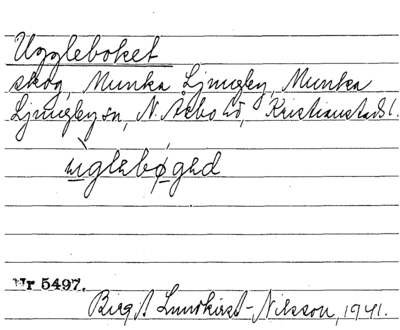 Uggleboket
skog, Munka Ljungby, Munka
Ljungby sn, N. Åsbo hd, Kristianstads l.
ùglebøged
Nr 5497.
Birgit Lundkvist-Nilsson, 1941.